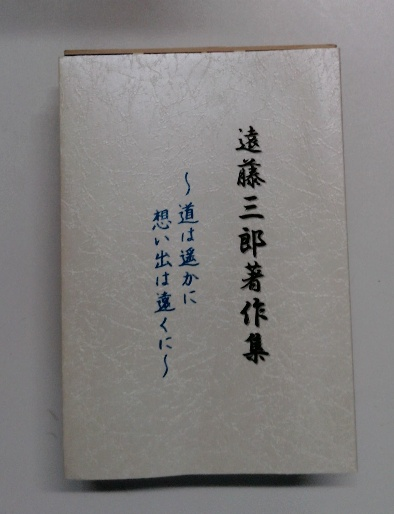 遠藤三郎著作集
～道は遥かに
想い出は遠くに～